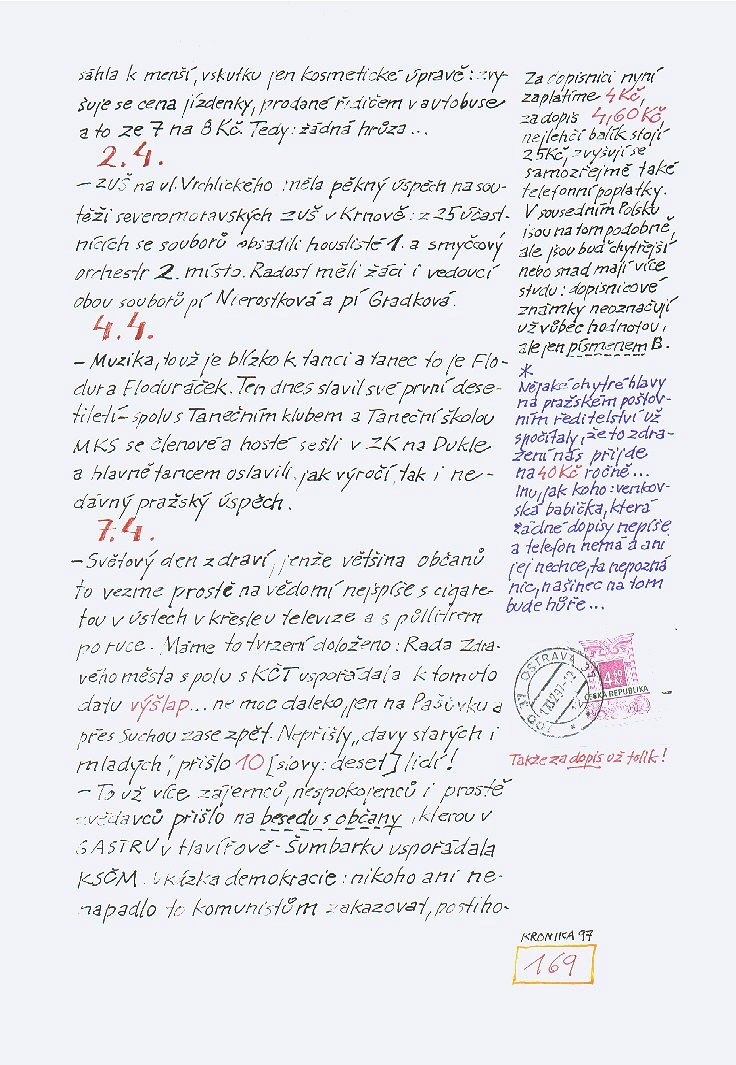 sáhla k menší, vskutku jen kosmetické úpravě: zvy-
šuje se cena jízdenky, prodané řidičem v autobuse
a to ze 7 na 8 Kč. Tedy: žádná hrůza...
2.4.
— ZUŠ na ul. Vrchlického měla pěkný úspěch na sou-
těži severomoravských ZUŠ v Krnově: z 25 účast-
nících se souborů obsadili houslisté 1. a smyčcový
orchestr 2. místo. Radost měli žáci i vedoucí
obou souborů pí Nierostková a pí Gradková.
4.4.
— Muzika, to už je blízko k tanci a tanec to je Flo-
dur a Floduráček. Ten dnes slavil své první dese-
tiletí - spolu s Tanečním klubem a Taneční školou
MKS se členové a hosté sešli v ZK na Dukle
a hlavně tancem oslavili jak výročí, tak i ne-
dávný pražský úspěch.
7.4.
— Světový den zdraví, jenže většina občanů
to vezme prostě na vědomí nejspíše s cigare-
tou v ústech v křesle u televize a s půllitrem
po ruce. Máme to tvrzení doloženo: Rada Zdra-
vého města spolu s KČT uspořádala k tomuto
datu výšlap... ne moc daleko, jen na Pašůvku a
přes Suchou zase zpět. Nepřišly "davy starých i
mladých", přišlo 10 [slovy: deset] lidí!
— To už více zájemců, nespokojenců i prostě
zvědavců přišlo na besedu s občany, kterou v
GASTRU v Havířově - Šumbarku uspořádala
KSČM. Ukázka demokracie: nikoho ani ne-
napadlo to komunistům zakazovat, postiho-
Za dopisnici nyní
zaplatíme 4 Kč,
za dopis 4,60 Kč,
nejlehčí balík stojí
25 Kč, zvyšují se
samozřejmě také
telefonní poplatky.
V sousedním Polsku
jsou na tom podobně,
ale jsou buď chytřejší
nebo snad mají více
studu: dopisnicové
známky neoznačují
už vůbec hodnotou,
ale jen písmenem B.
*
Nějaké chytré hlavy
na pražském poštov-
ním ředitelství už
spočítaly, že to zdra-
žení nás přijde
na 40 Kč ročně...
Inu, jak koho: venkov-
ská babička, která
žádné dopisy nepíše
a telefon nemá a ani
jej nechce, ta nepozná
nic, našinec na tom
bude hůře...
OSTRAVA
4,60 Kč
ČESKÁ REPUBLIKA
Takže za dopis už tolik!
KRONIKA 97
169